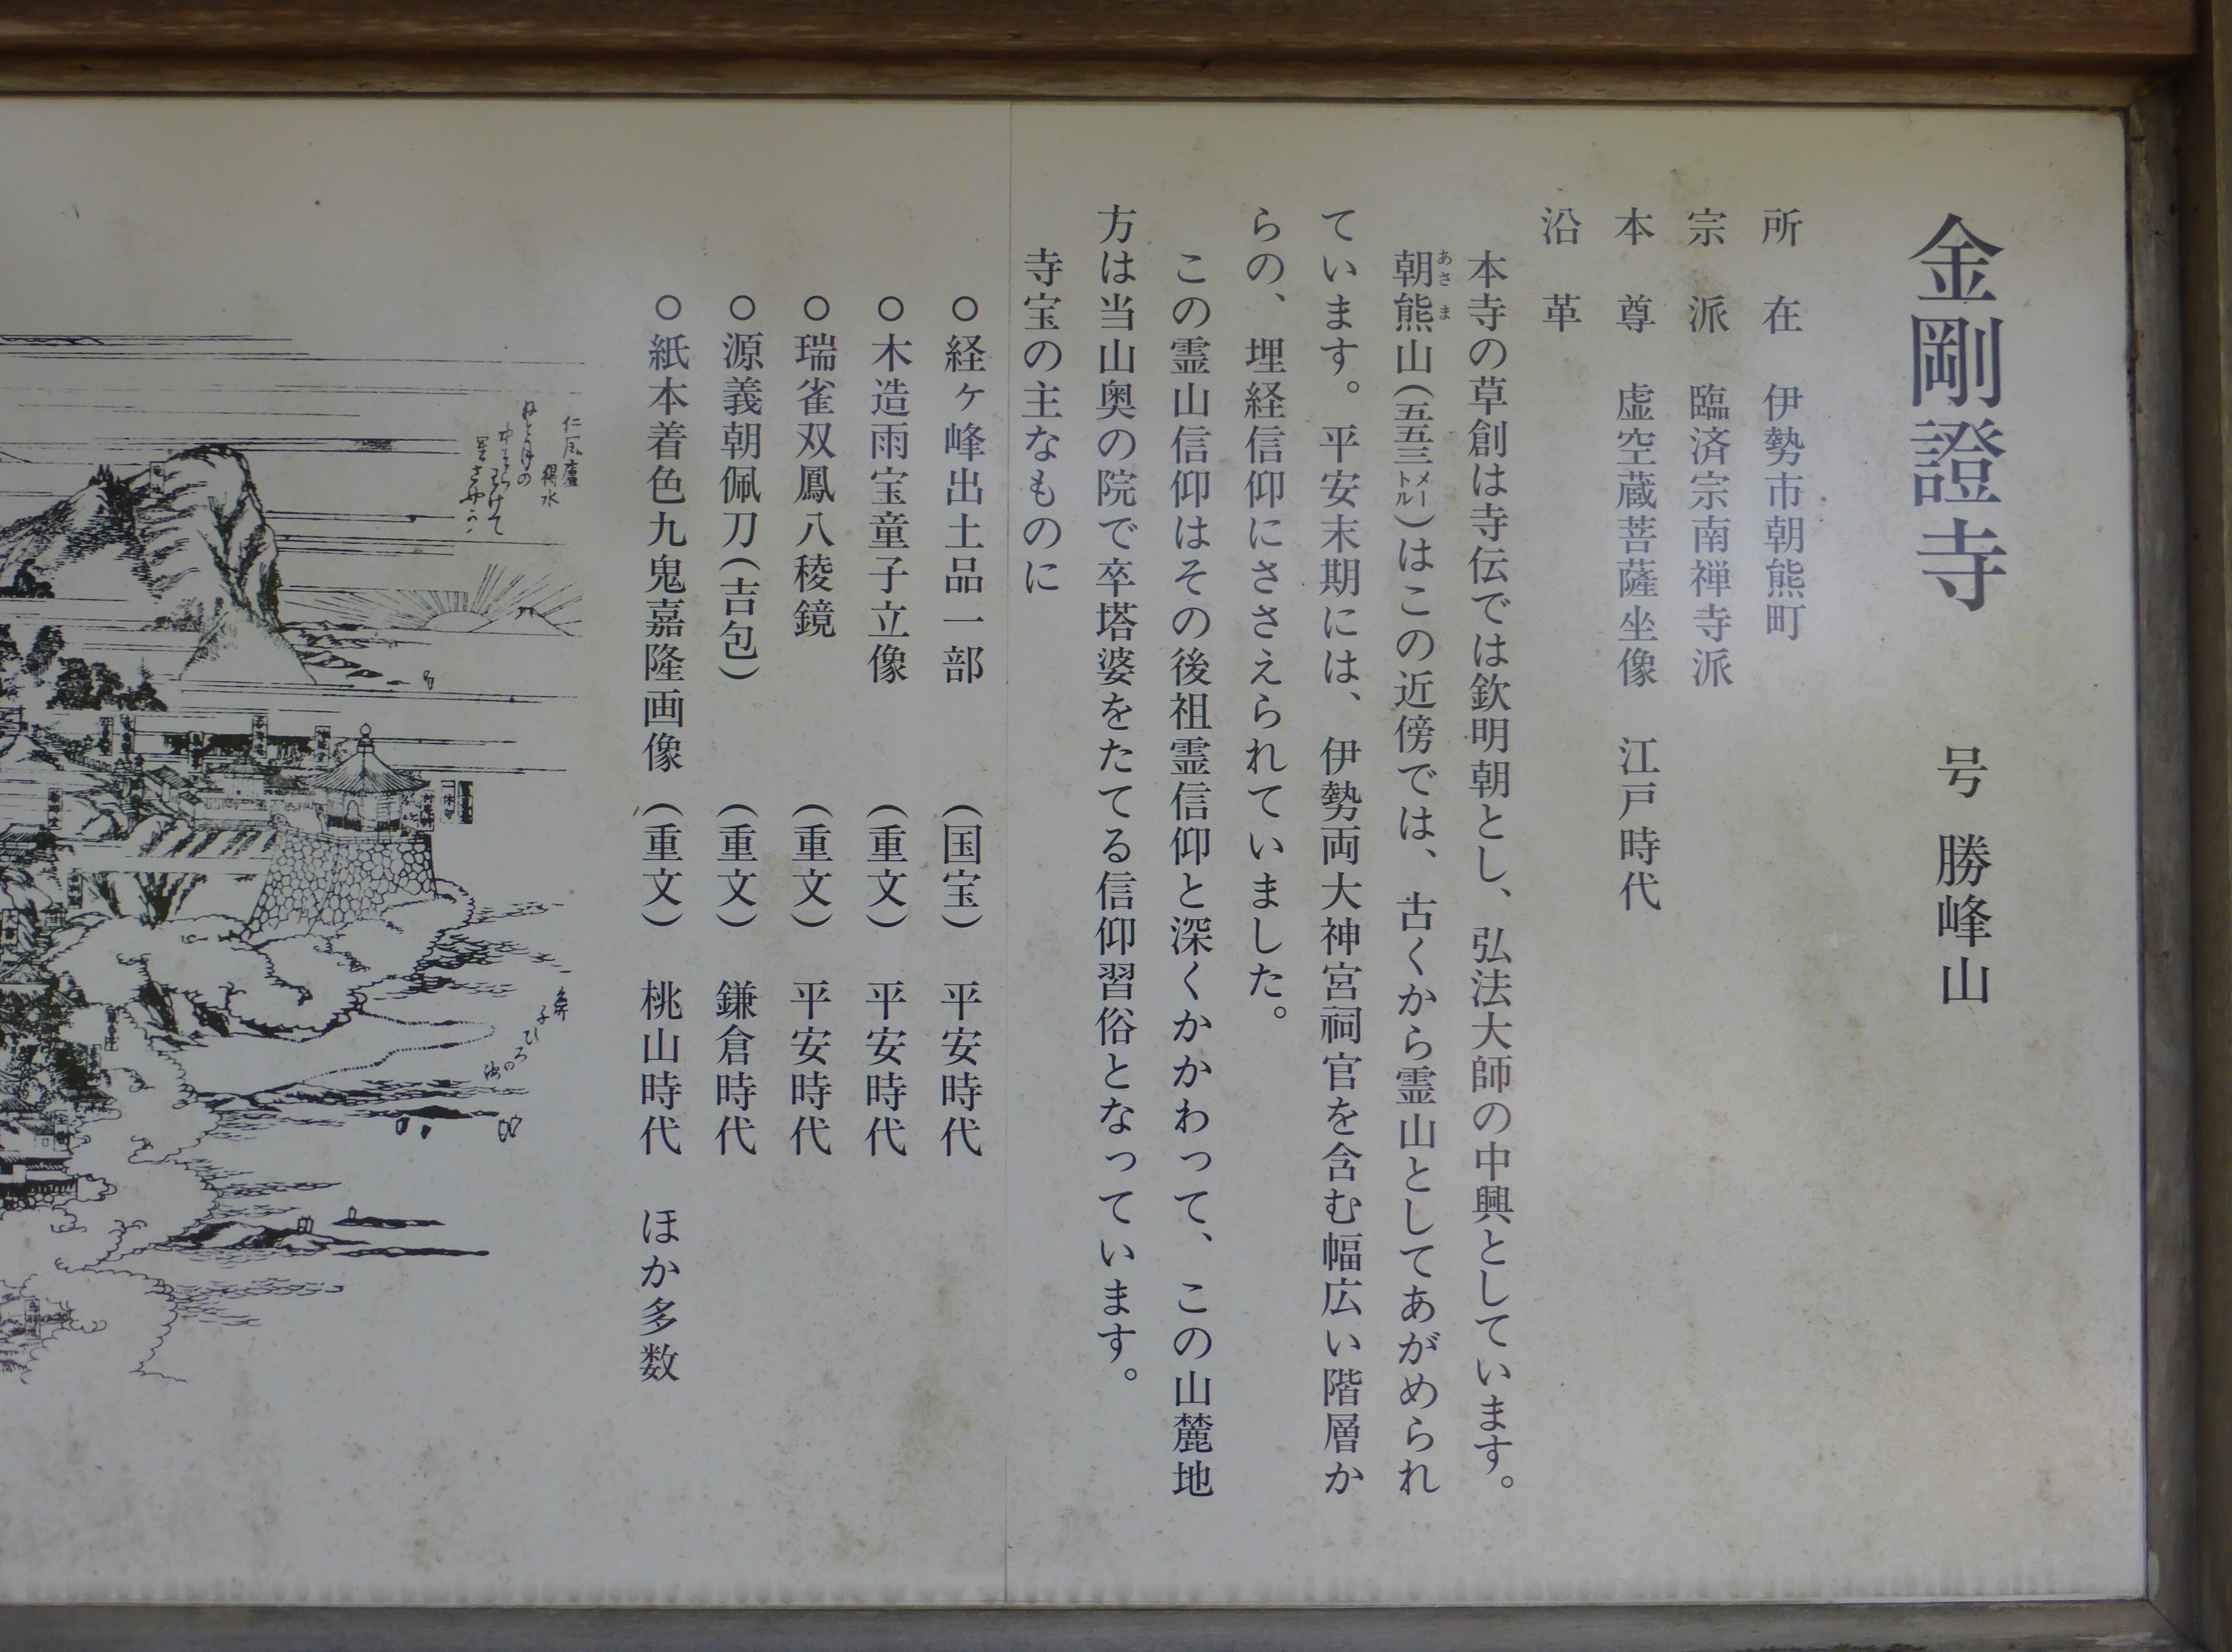 金剛證寺　号 勝峰山
所在　伊勢市朝熊町
宗派　臨済宗南禅寺派
本尊　虚空蔵菩薩坐像　江戸時代
沿革
本寺の草創は寺伝では欽明朝とし、弘法大師の中興としています。
朝熊山（五五三メートル）はこの近傍では、古くから霊山としてあがめられ
あさま
ています。平安末期には、伊勢両大神宮祠官を含む幅広い階層か
らの、埋経信仰にささえられていました。
この霊山信仰はその後祖霊信仰と深くかかわって、この山麓地
方は当山奥の院で卒塔婆をたてる信仰習俗となっています。
寺宝の主なものに
○経ヶ峰出土品一部　（国宝）　平安時代
○木造雨宝童子立像　（重文）　平安時代
○瑞雀双鳳八稜鏡　（重文）　平安時代
○源義朝佩刀（吉包）　（重文）　鎌倉時代
○紙本着色九鬼嘉隆画像　（重文）　桃山時代　ほか多数